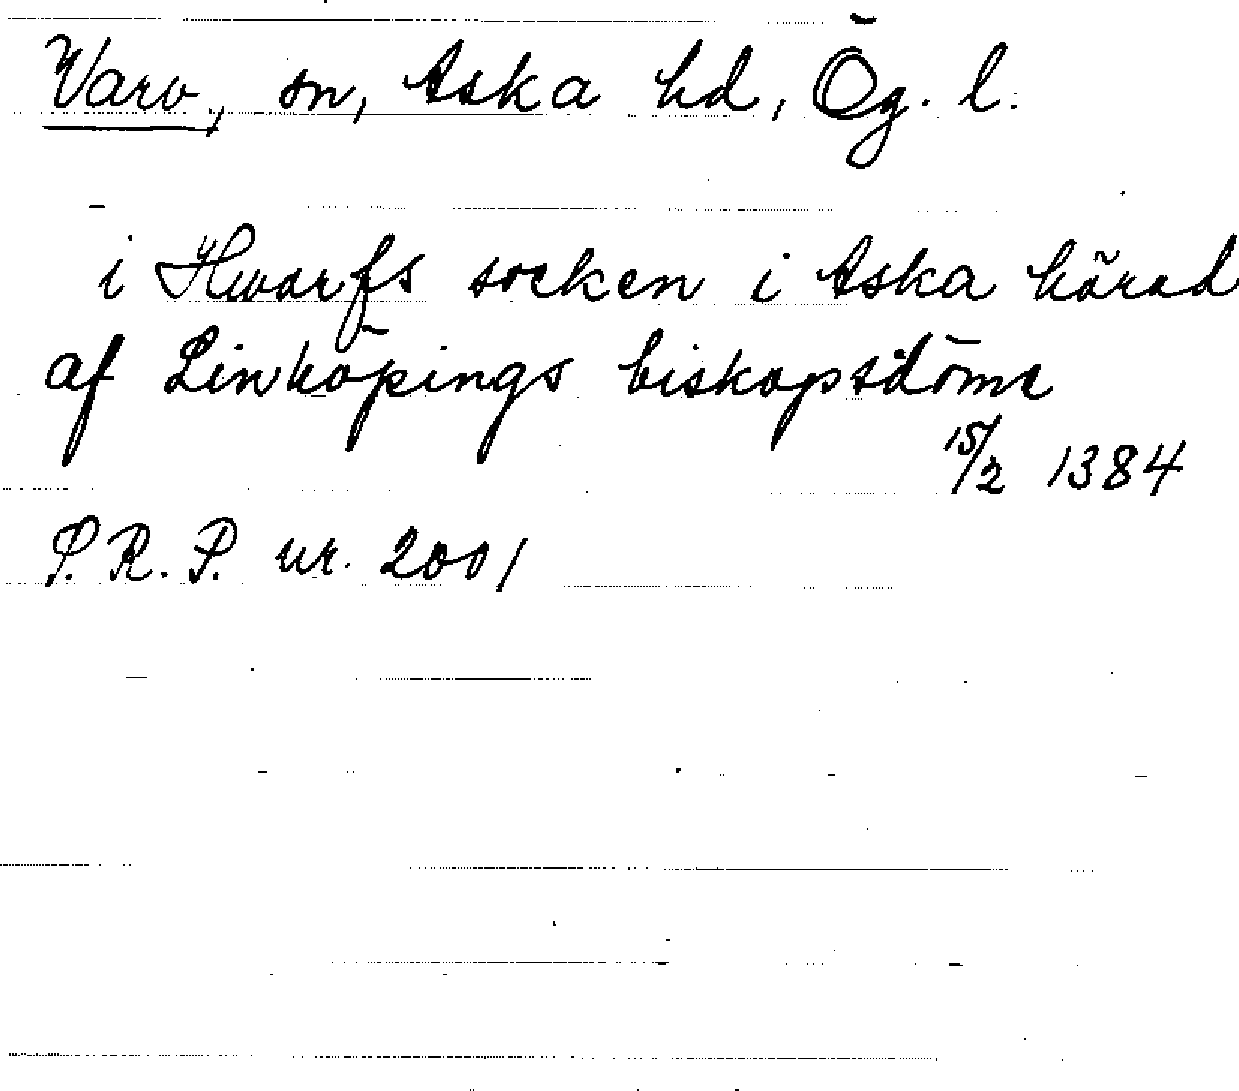 Varv, sn, Aska hd, Ög. l.
i Hwarfs socken i Aska härad
af Linköpings biskopsdöme
15/2 1384
S.R.P. nr. 2001